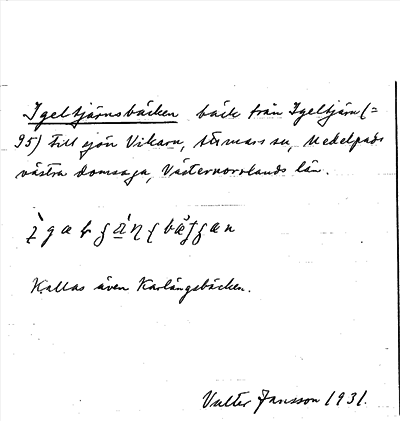 Igeltjärnsbäcken bäck från Igeltjärn (=
95) till sjön Vikarn, Stöde sn, Medelpads
västra domsaga, Västernorrlands län.
Kallas även Karlångsbäcken.
Valter Jansson 1931.